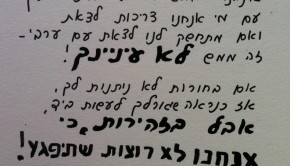 עם מי אנחנו צריכות לצאת
ואם מתחשק לנו לצאת עם ערבי-
זה ממש לא עיניינך!
אם בחורות לא ניתנות לך,
אז כניראה שגורלך לעשות ביד,
אבל בזהירות, כי
אנחנו לא רוצות שתיפגע!